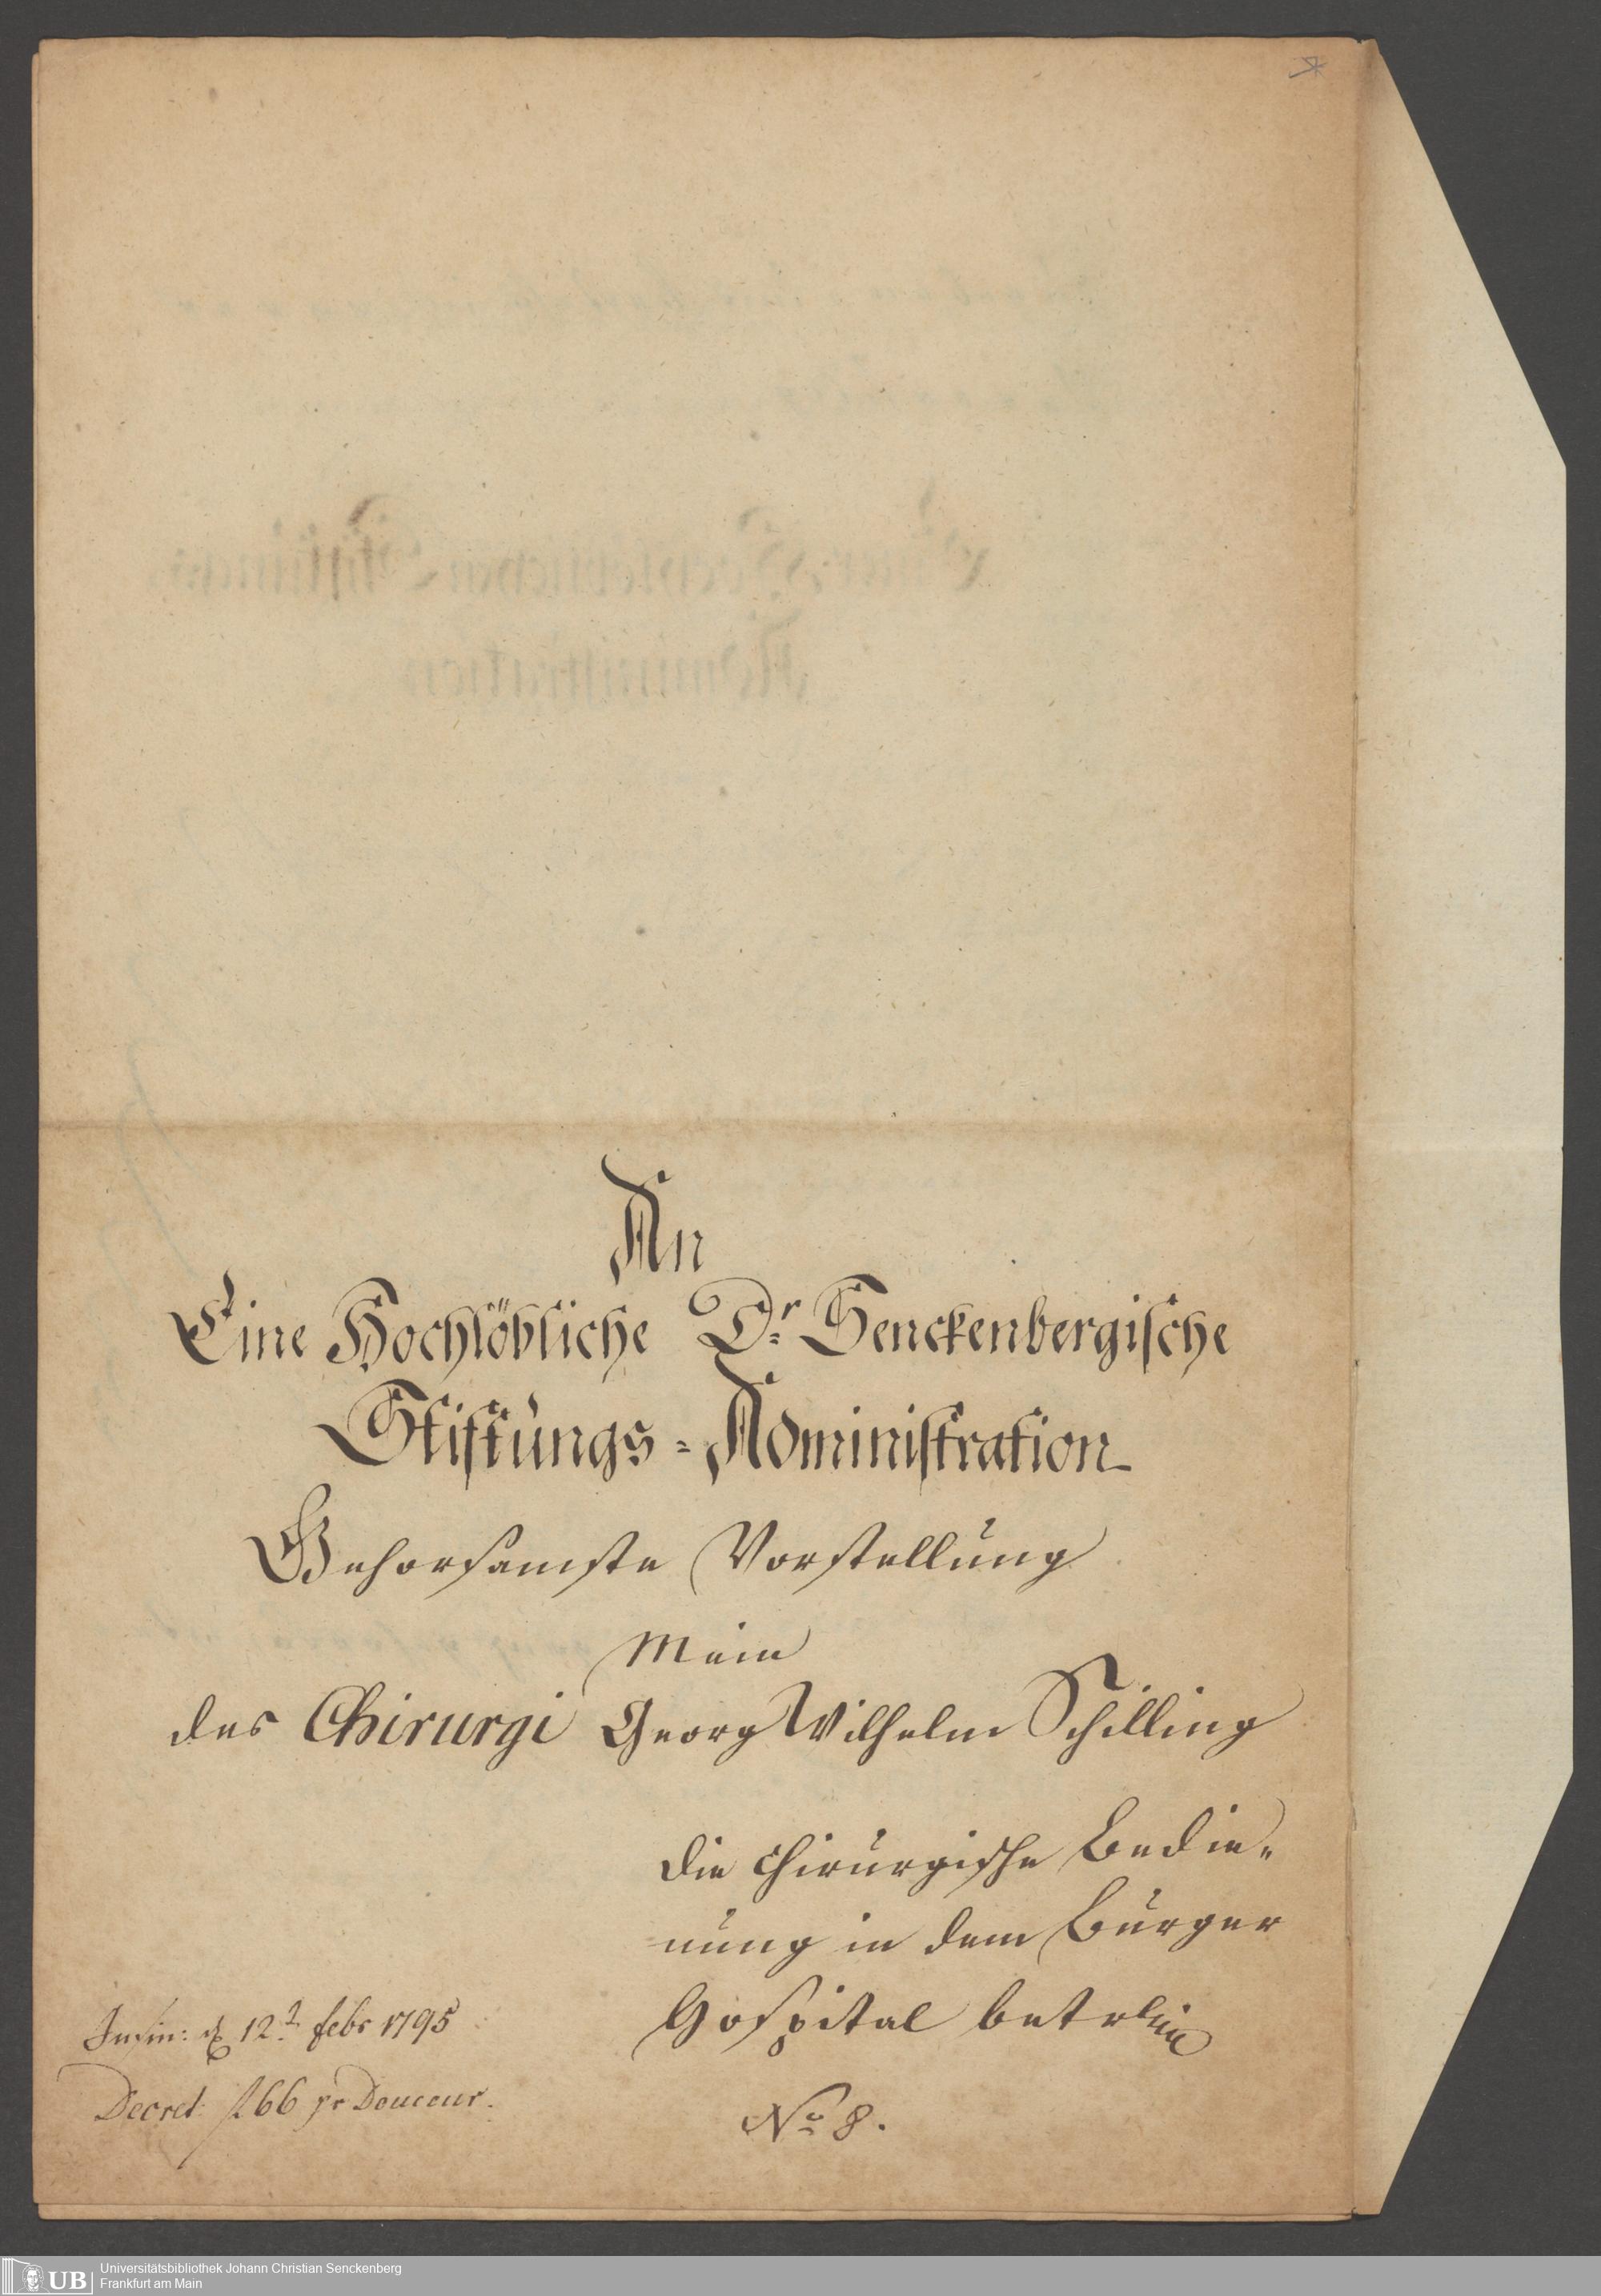 An
Eine Hochlöbliche Dr. Senckenbergische
Stiftungs-Administration
Gehorsamste Vorstellung
Mein
des Chirurgi Georg Wilhelm Schilling
die chirurgische Bedie-
nung in dem Burger
Hospital betr.
Insin: d 12. febr 1795
Decret: 66 pr Douceur.
No 8.
UB Universitätsbibliothek Johann Christian Senckenberg
Frankfurt am Main